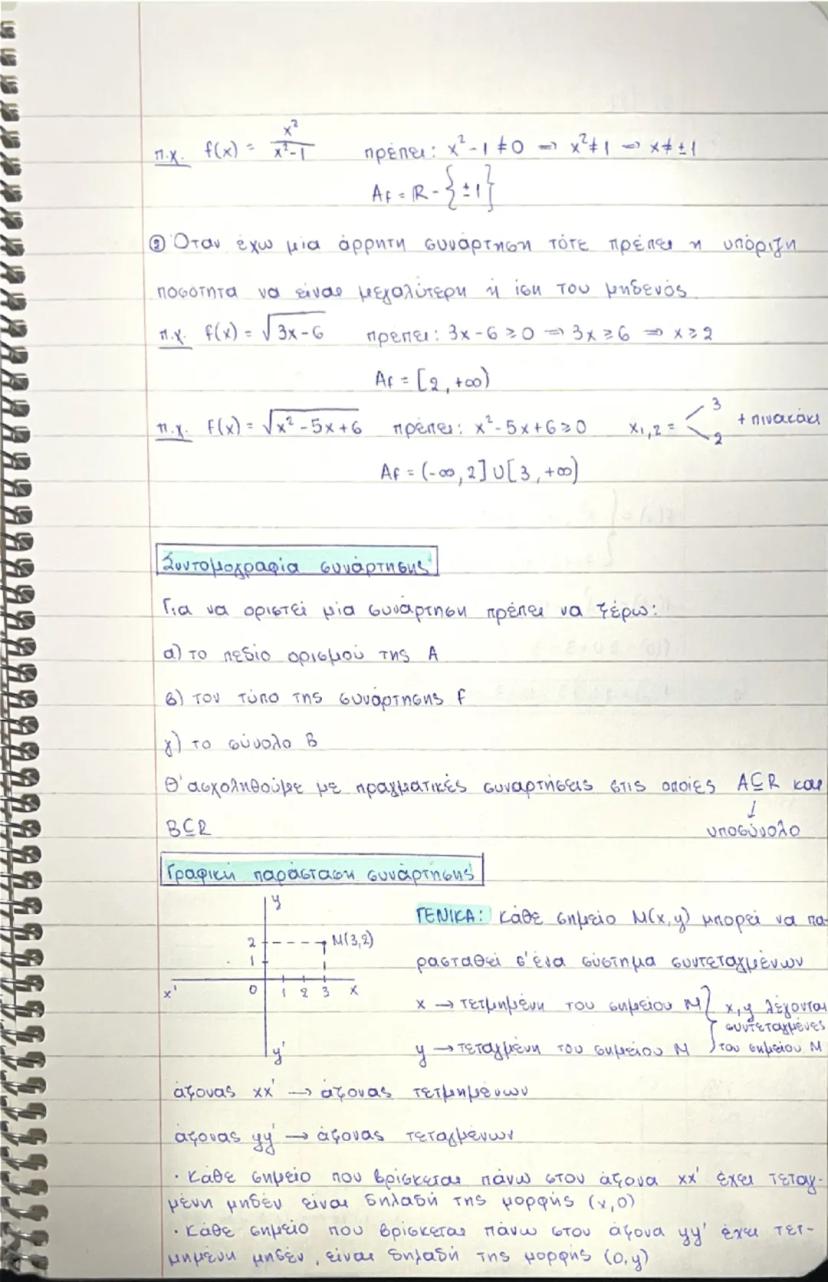 π.χ. f(x) = x²/(x²-1) πρέπει: x²-1≠0 ⇒ x²≠1 ⇒ x≠±1
Af = ℝ - {±1}
② Όταν έχω μία άρρητη συνάρτηση τότε πρέπει η υπόριζη
ποσότητα να είναι μεγαλύτερη ή ίση του μηδενός
π.χ. f(x) = √(3x-6) πρέπει: 3x-6≥0 ⇒ 3x≥6 ⇒ x≥2
Af = [2, +∞)
π.χ. f(x) = √(x²-5x+6) πρέπει: x²-5x+6≥0 x₁,₂ = 3 2 + πινακάκι
Af = (-∞, 2] ∪ [3, +∞)
Συντομογραφία συνάρτησης
Για να οριστεί μία συνάρτηση πρέπει να ξέρω:
α) το πεδίο ορισμού της Α
β) τον τύπο της συνάρτησης f
γ) το σύνολο Β
Θ' ασχοληθούμε με πραγματικές συναρτήσεις στις οποίες Α⊆R και
Β⊆R
↓ υποσύνολο
Γραφική παράσταση συνάρτησης
y
2 M(3,2)
1
x' 0 1 2 3 x
y'
ΓΕΝΙΚΑ: Κάθε σημείο Μ(x,y) μπορεί να πα-
ρασταθεί σ' ένα σύστημα συντεταγμένων
x → τετμημένη του σημείου Μ
y → τεταγμένη του σημείου Μ
} x,y λέγονται
συντεταγμένες
του σημείου Μ
άξονας xx' → άξονας τετμημένων
άξονας yy' → άξονας τεταγμένων
· Κάθε σημείο που βρίσκεται πάνω στον άξονα xx' έχει τεταγ-
μένη μηδέν είναι δηλαδή της μορφής (x,0)
· Κάθε σημείο που βρίσκεται πάνω στον άξονα yy' έχει τετ-
μημένη μηδέν, είναι δηλαδή της μορφής (0,y)